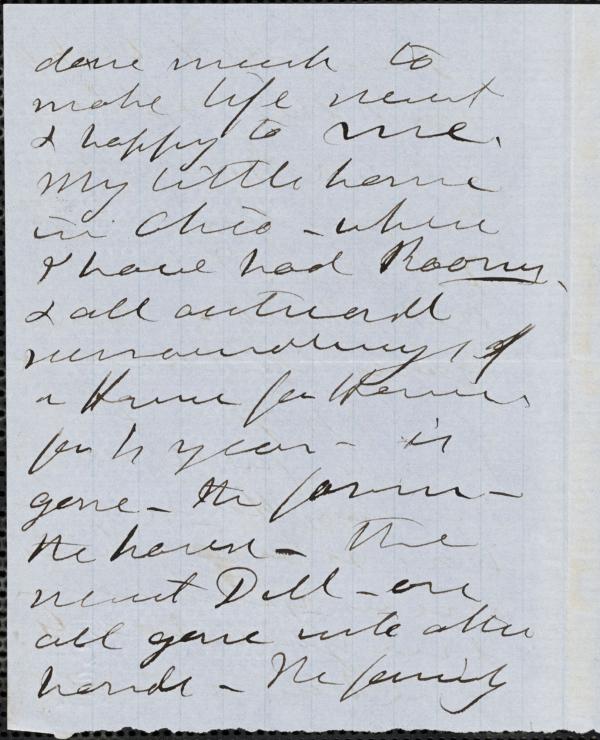 done much to
make life sweet
& happy to me.
My little home
in Ohio - where
I have had Rooms,
& all outward
surroundings of
a Home for
for years - is
gone - the farm -
the house - The
sweet Dell - are
all gone into other
hands - The family